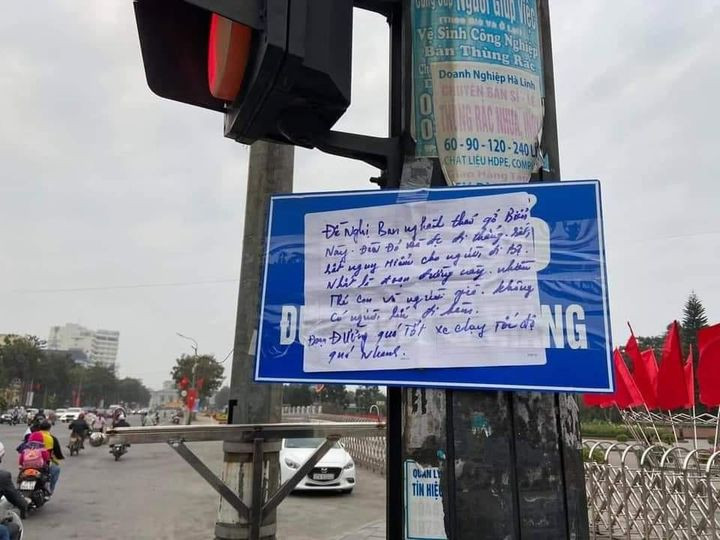 Người Giúp Việc
Vệ Sinh Công Nghiệp
Bán Thùng Rác
Doanh Nghiệp Hà Linh
CHUYÊN BÁN SỈ - LẺ
THÙNG RÁC NHỰA,
60 - 90 - 120 - 240 L
CHẤT LIỆU HDPE, COMP
Đề Nghị Ban nghành tháo gỡ Biển
Này. Đèn Đỏ
rất nguy Hiểm cho người đi bộ,
Nhất là đoạn đường này. nhiều
Trẻ con và người già. không
có người lớn đi kèm.
Đoạn Đường quá Tốt xe chạy Tốc độ
quá Nhanh.
Đ NG
QUẢN L
TÍN HIỆU